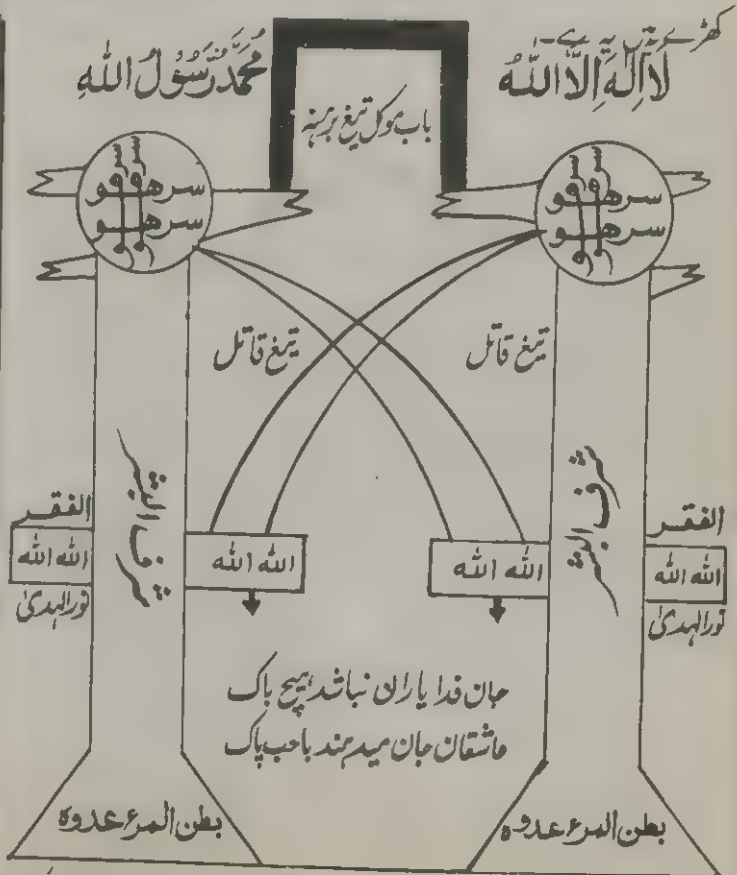 کھڑے ہیں یہ ہے۔
لَا اِلٰهَ اِلَّا اللّٰهُ
مُحَمَّدٌ رَّسُوْلُ اللّٰهِ
باب موکل تیغ برہنہ
سرھو
سرھو
سرھو
سرھو
تیغ قاتل
تیغ قاتل
شرف البشر
شرف البشر
الفقر
اللہ اللہ
نور الہدیٰ
اللہ اللہ
اللہ اللہ
الفقر
اللہ اللہ
نور الہدیٰ
جان فدا یاران نباشد ہیچ باک
عاشقان جان میدہند باحب پاک
بطن المرء عدوہ
بطن المرء عدوہ